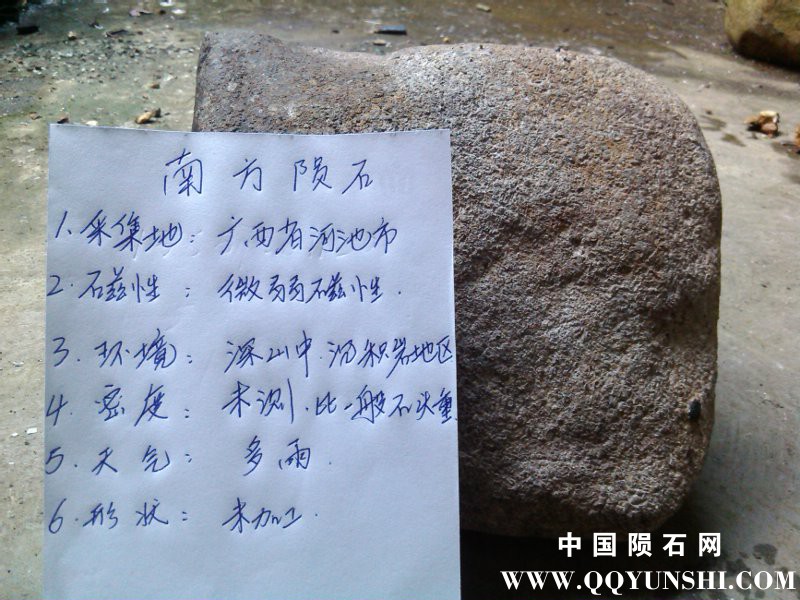 南方陨石
1、采集地：广西省河池市
2．磁性：微弱磁性．
3．环境：深山中．沉积岩地区
4．密度：未测．比一般石头重
5．天气：多雨．
6．形状：未加工．
中国陨石网
WWW.QQYUNSHI.COM